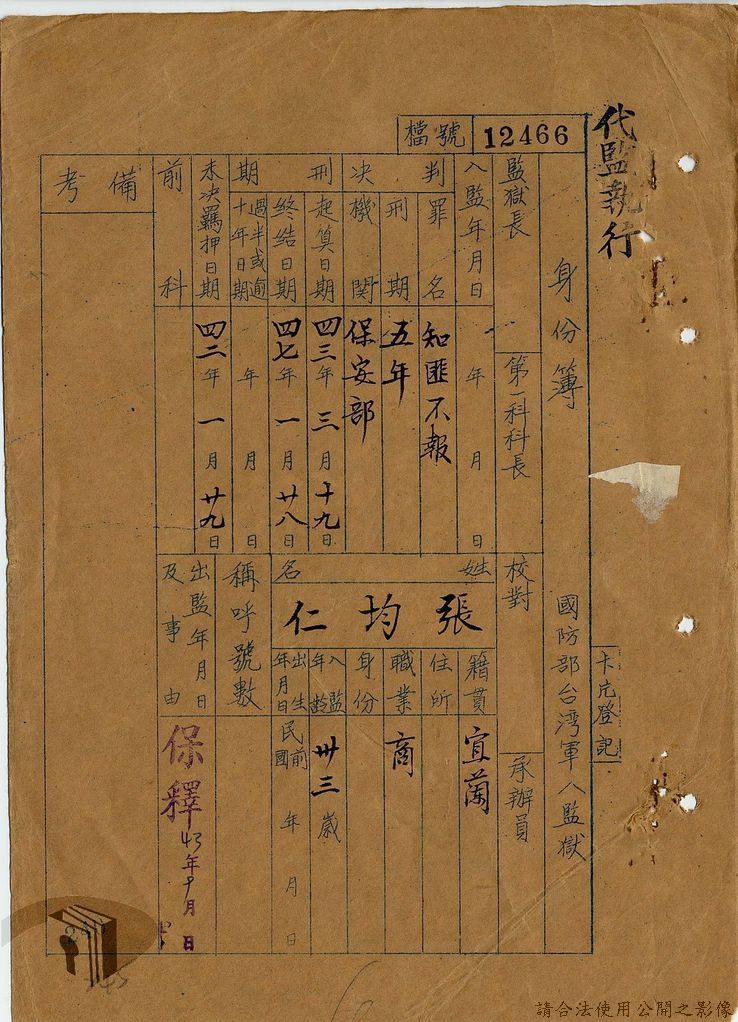 代監執行
檔號 12466
卡片登記
身份簿 國防部台湾軍人監獄
監獄長 第一科科長 校對 承辦員
入監年月日 年 月 日
判决刑期
罪名 知匪不報
刑期 五年
機関 保安部
起算日期 四三年 三月 十九日
終结日期 四七年 一月 廿八日
過半或逾十年日期 年 月 日
未决羈押日期 四二年 一月 廿九日
前科
備考
姓名 張均仁
籍貫 宜蘭
住所
職業 商
身份
入監年齡 卅三歲
出生年月日 民國前 年 月 日
稱呼號數
出監年月日及事由 保釋 年 月 日
請合法使用公開之影像